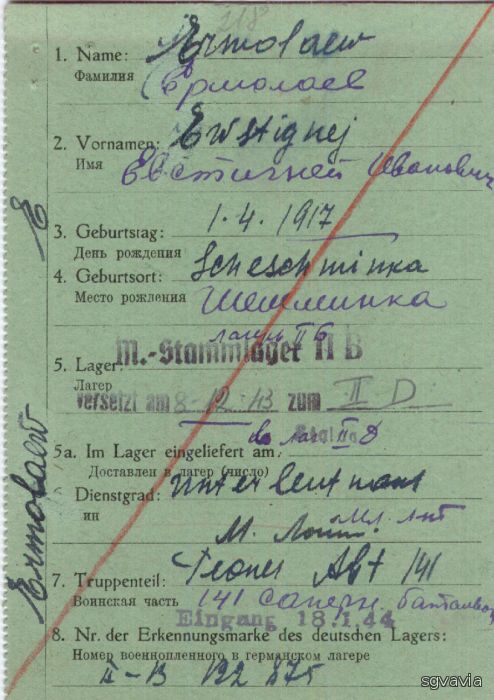 218
1. Name: Ermolaew
Фамилия Ермолаев
2. Vornamen: Ewstignej
Имя Евстигней Иванович
E
3. Geburtstag: 1.4.1917
День рождения
4. Geburtsort: Scheschminka
Место рождения Шешминка
лагерь II Б
M.-Stammlager II B
5. Lager:
Лагер
versetzt am 8-12-43 zum II D
Stalag
в лаг. II Д
5a. Im Lager eingeliefert am
Доставлен в лагер (число)
6. Dienstgrad: Unterleutnant
ин
Мл. Лейт
Ermolaew
7. Truppenteil: Pionier Abt 141
Воинская часть 141 саперн. батальон
Eingang 18.1.44
8. Nr. der Erkennungsmarke des deutschen Lagers:
Номер военнопленного в германском лагере
II-B 122 875
sgvavia